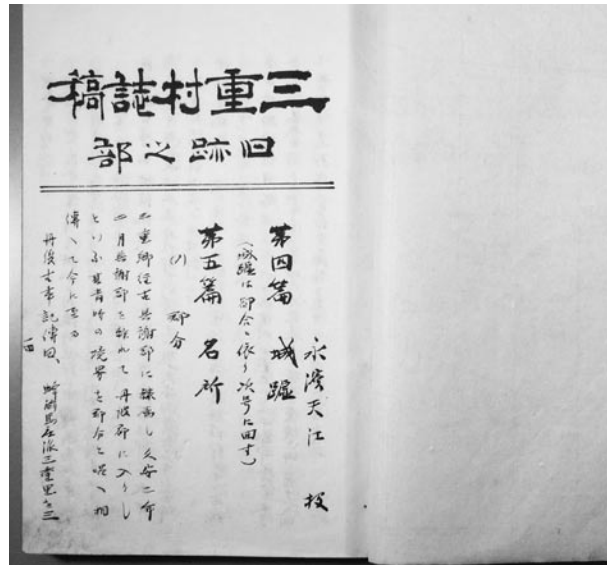 三重村誌稿
旧跡之部
永濱天江 投
第四篇 城墟
(城墟は都合ニ依り次号に回す)
第五篇 名所
(1) 郡分
三重郷往古與謝郡に隷属し久安二年
月與謝郡を離れて丹波郡に入りし
といふ其當時の境界を郡分と唱へ相
傳へて今に至る
丹後古事記傳曰、 三重里を三
百